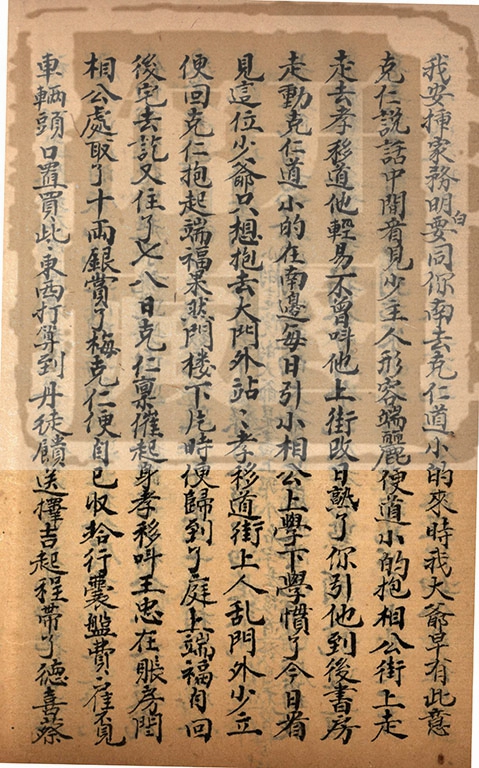 我安揷家務明白要同你南去克仁道小的來時我大爺早有此意
克仁說話中間看見少主人形容端麗便道小的抱相公街上走
走去孝移道他輕易不曾呌他上街改日熟了你引他到後書房
走動克仁道小的在南邊每日引小相公上學下學慣了今日看
見這位少爺只想抱去大門外站〻孝移道街上人乱門外少立
便回克仁抱起端福果然門楼下片時便歸到了庭上端福自回
後宅去訖又住了七八日克仁禀催起身孝移呌王忠在賬房閻
相公處取了十兩銀賞了梅克仁便自已収拾行囊盤費〻雇覔
車輌頭口置買此〻東西打筭到丹徒饋送擇吉起程帶了德喜蔡